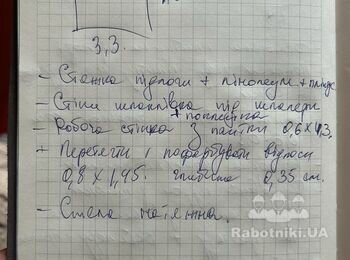 3,3.
- Стяжка підлоги + лінолеум + плінтус
- Стіни шпаклівка під шпалери
+ поклейка
- Робоча стінка з плитки 0,6 х 4,3.
+ Перетягти і пофарбувати відкоси
0,8 х 1,45. глибина 0,35 см.
- Стеля натяжна.
Rabotniki.UA